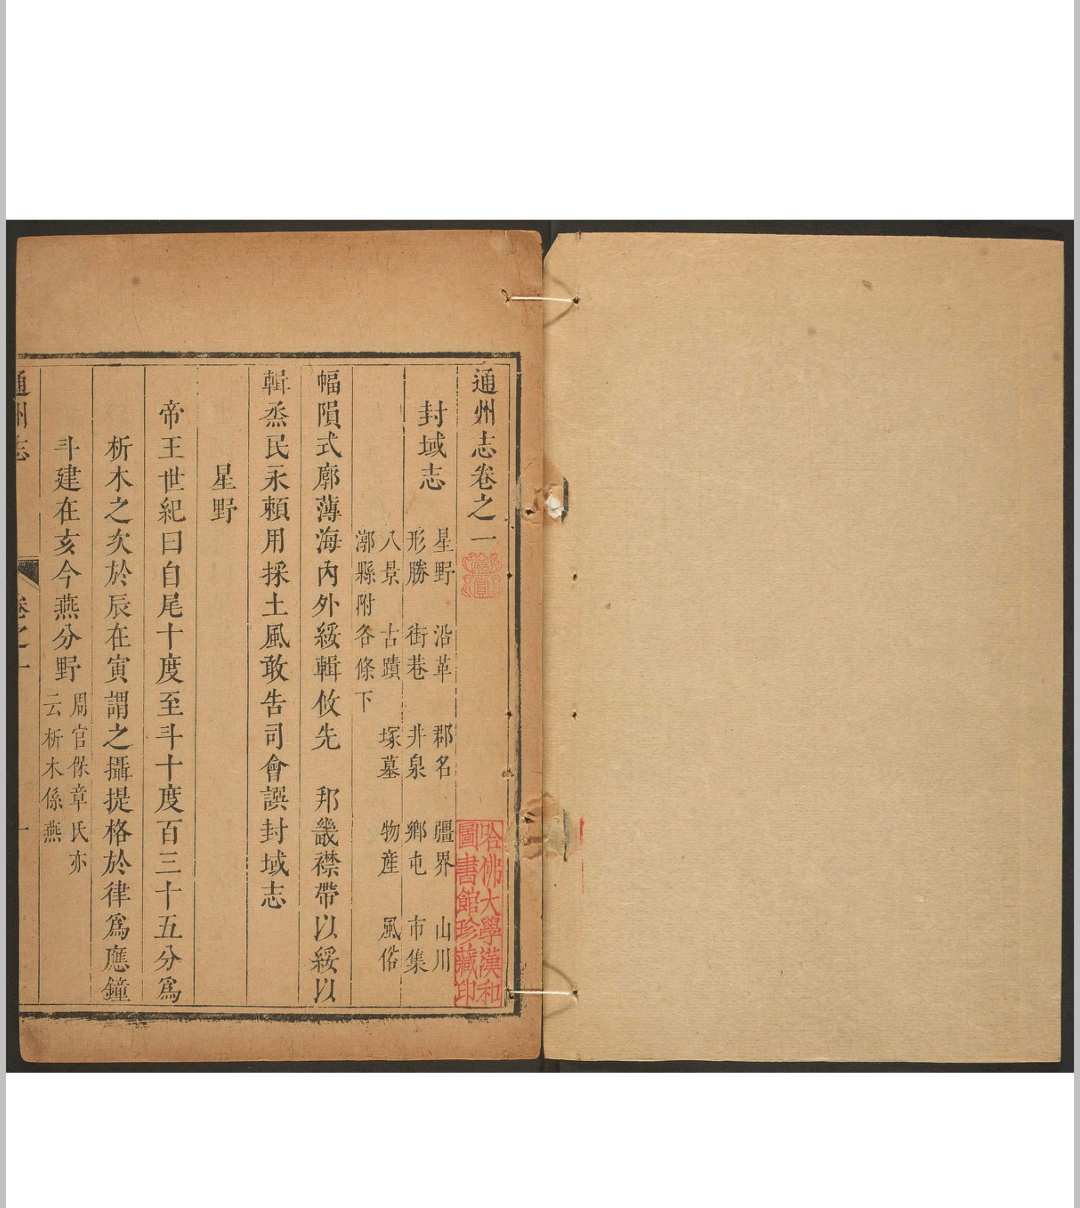 通州志卷之一
封域志
星野 沿革 郡名 疆界 山川
形勝 街巷 井泉 鄉屯 市集
八景 古蹟 塚墓 物産 風俗
漷縣附各條下
幅隕式廓薄海內外綏輯攸先 邦畿襟帶以綏以
輯烝民永賴用採土風敢告司會譔封域志
星野
帝王世紀曰自尾十度至斗十度百三十五分爲
析木之次於辰在寅謂之攝提格於律爲應鐘
斗建在亥今燕分野
周官保章氏亦
云析木係燕
通州志 卷之一 一
哈佛大學漢和
圖書館珍藏印